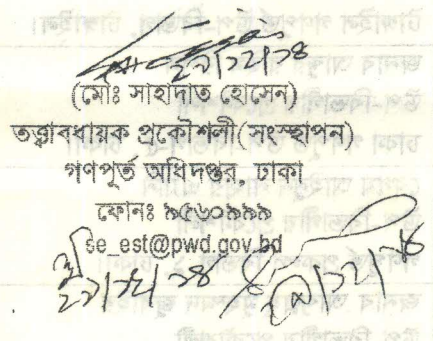 ২৯/১২/১৪
(মোঃ সাহাদাত হোসেন)
তত্ত্বাবধায়ক প্রকৌশলী(সংস্থাপন)
গণপূর্ত অধিদপ্তর, ঢাকা
ফোনঃ ৯৫৬০৯৯৯
se_est@pwd.gov.bd
২৯/১২/১৪